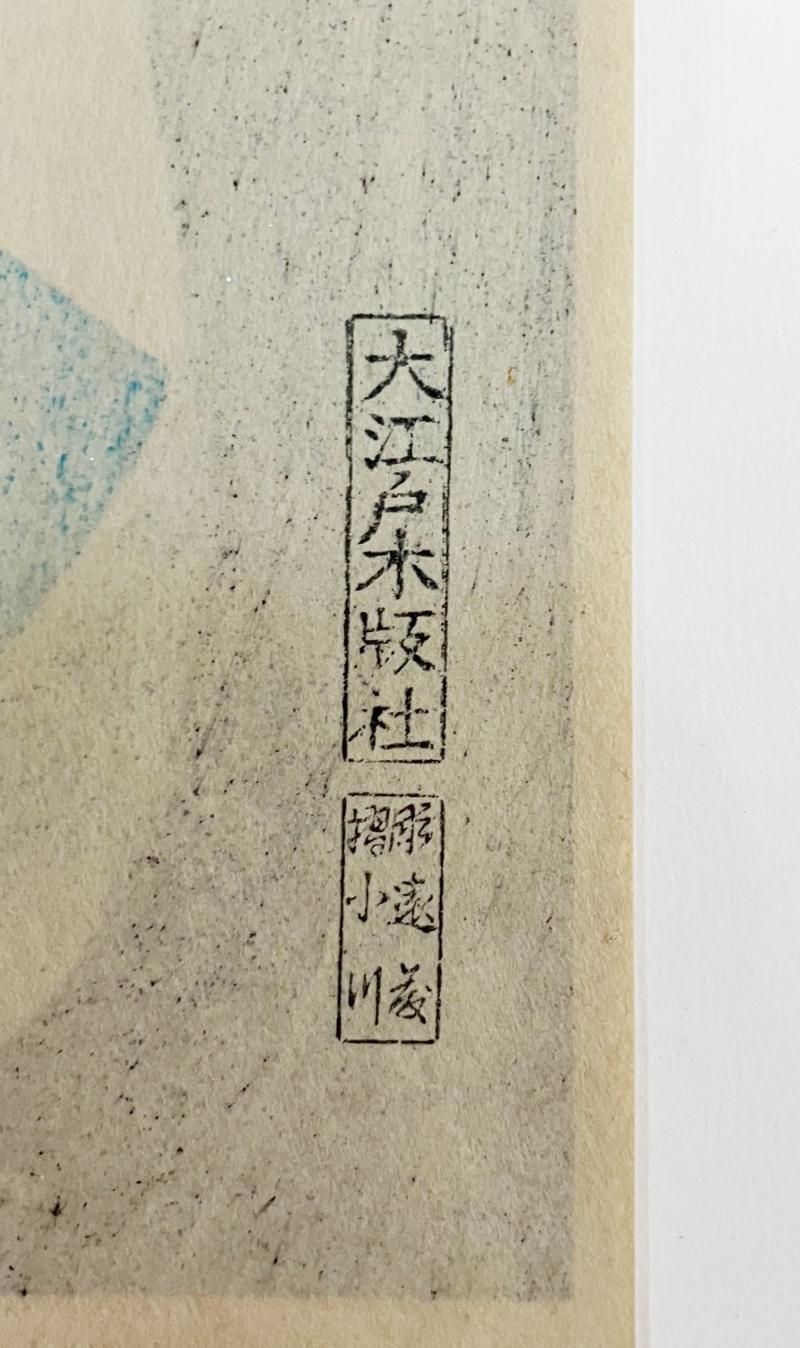 大江戸木版社
彫遠藤
摺小川